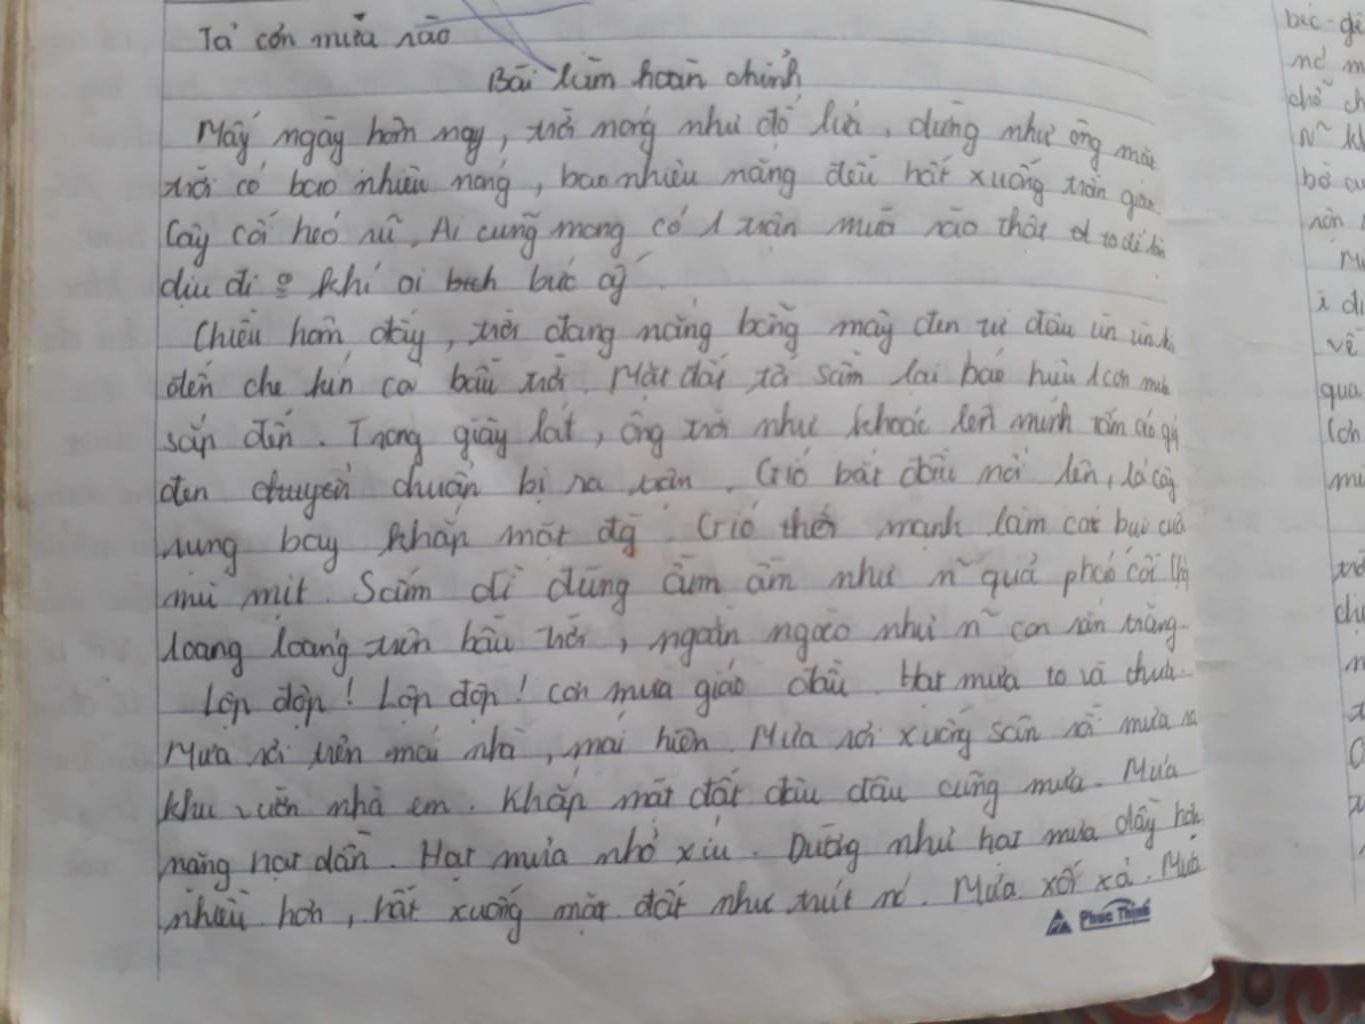 Tả cơn mưa rào
Bài làm hoàn chỉnh
Mấy ngày hôm nay, trời nóng như đổ lửa, dường như ông mặt
trời có bao nhiêu nóng, bao nhiêu nắng đều hắt xuống trần gian
Cây cối héo rũ. Ai cũng mong có 1 trận mưa rào thật to để
dịu đi khí oi bức ấy.
Chiều hôm đấy, trời đang nắng bỗng mây đen từ đâu ùn ùn
đến che kín cả bầu trời. Mặt đất tối sầm lại báo hiệu 1 cơn mưa
sắp đến. Trong giây lát, ông trời như khoác lên mình tấm áo giáp
đen chuẩn bị ra trận. Gió bắt đầu nổi lên, lá cây
rụng bay khắp mặt đg. Gió thổi mạnh làm cát bụi
mù mịt. Sấm đì đùng ầm ầm như n~ quả pháo cối
loang loáng trên bầu trời, ngoằn ngoèo như n~ con rắn trắng.
Lộp độp! Lộp độp! Cơn mưa giáo đầu. Hạt mưa to và thưa.
Mưa rơi trên mái nhà, mái hiên. Mưa rơi xuống sân rồi mưa ra
khu vườn nhà em. Khắp mặt đất đâu đâu cũng mưa. Mưa
nặng hạt dần. Hạt mưa nhỏ xíu. Dường như hạt mưa dầy hơn
nhiều hơn, hắt xuống mặt đất như trút nó. Mưa xối xả. Mưa
Phúc Thịnh
qua